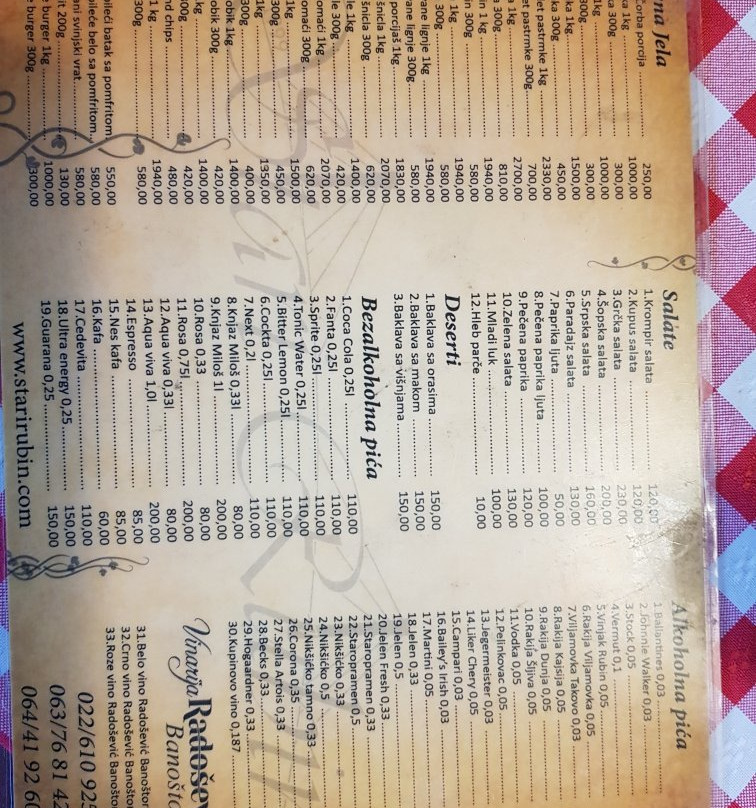 na Jela
Čorba porcija 250,00
ka 1kg 1000,00
ka 300g 300,00
1kg 1000,00
300g 300,00
ka 1kg 1500,00
ka 300g 450,00
et pastrmke 1kg 2330,00
et pastrmke 300g 700,00
a 1kg 2700,00
a 300g 810,00
in 1 kg 1940,00
in 300g 580,00
1kg 1940,00
300g 580,00
ane lignje 1kg 1940,00
ane lignje 300g 580,00
porcijaš 1kg 1830,00
šnicla 1kg 2070,00
šnicla 300g 620,00
le 1kg 1400,00
le 300g 420,00
omaći 1kg 2070,00
omaći 300g 620,00
1kg 1500,00
300g 450,00
1kg 1350,00
300g 400,00
obik 1kg 1400,00
obik 300g 420,00
kg 1400,00
00g 420,00
nd chips 480,00
1 kg 1940,00
300g 580,00
ileći batak sa pomfritom 550,00
pileće belo sa pomfritom 580,00
ani svinjski vrat 580,00
it 200g 130,00
burger 1kg 1000,00
burger 300g 300,00
Salate
1.Krompir salata 120,00
2.Kupus salata 120,00
3.Grčka salata 230,00
4.Šopska salata 200,00
5.Srpska salata 160,00
6.Paradajz salata 130,00
7.Paprika ljuta 50,00
8.Pečena paprika ljuta 100,00
9.Pečena paprika 120,00
10.Zelena salata 130,00
11.Mladi luk 100,00
12.Hleb parče 10,00
Deserti
1.Baklava sa orasima 150,00
2.Baklava sa makom 150,00
3.Baklava sa višnjama 150,00
Bezalkoholna pića
1.Coca Cola 0,25l 110,00
2.Fanta 0,25l 110,00
3.Sprite 0,25l 110,00
4.Tonic Water 0,25l 110,00
5.Bitter Lemon 0,25l 110,00
6.Cockta 0,25l 110,00
7.Next 0,2l 110,00
8.Knjaz Miloš 0,33l 80,00
9.Knjaz Miloš 1l 200,00
10.Rosa 0,33 80,00
11.Rosa 0,75l 200,00
12.Aqua viva 0,33l 80,00
13.Aqua viva 1,0l 200,00
14.Espresso 85,00
15.Nes kafa 85,00
16.Kafa 60,00
17.Cedevita 110,00
18.Ultra energy 0,25 150,00
19.Guarana 0,25 150,00
www.starirubin.com
Alkoholna pića
1.Ballantines 0,03
2.Johnnie Walker 0,03
3.Stock 0,05
4.Vermut 0,1
5.Vinjak Rubin 0,05
6.Rakija Viljamovka 0,05
7.Viljamovka Takovo 0,03
8.Rakija Kajsija 0,05
9.Rakija Dunja 0,05
10.Rakija Šljiva 0,05
11.Vodka 0,05
12.Pelinkovac 0,05
13.Jegermeister 0,03
14.Liker Chery 0,05
15.Campari 0,03
16.Bailey's Irish 0,03
17.Martini 0,05
18.Jelen 0,33
19.Jelen 0,5
20.Jelen Fresh 0,33
21.Staropramen 0,33
22.Staropramen 0,5
23.Nikšićko 0,33
24.Nikšićko 0,5
25.Nikšićko tamno 0,33
26.Corona 0,35
27.Stella Artois 0,33
28.Becks 0,33
29.Hogaardner 0,33
30.Kupinovo vino 0,187
Vinarija Radošev
Banošto
31.Belo vino Radošević Banoštor
32.Crno vino Radošević Banoštor
33.Roze vino Radošević Banoštor
022/610 925
063/76 81 42
064/41 92 60
Stari Rubin